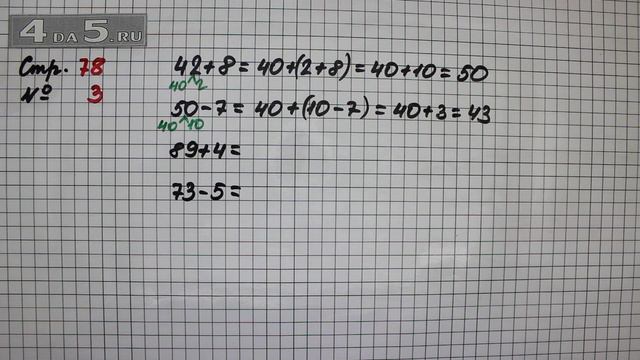 4 DA 5.RU
Стр. 78
№ 3
42+8=40+(2+8)=40+10=50
40 2
50-7=40+(10-7)=40+3=43
40 10
89+4=
73-5=